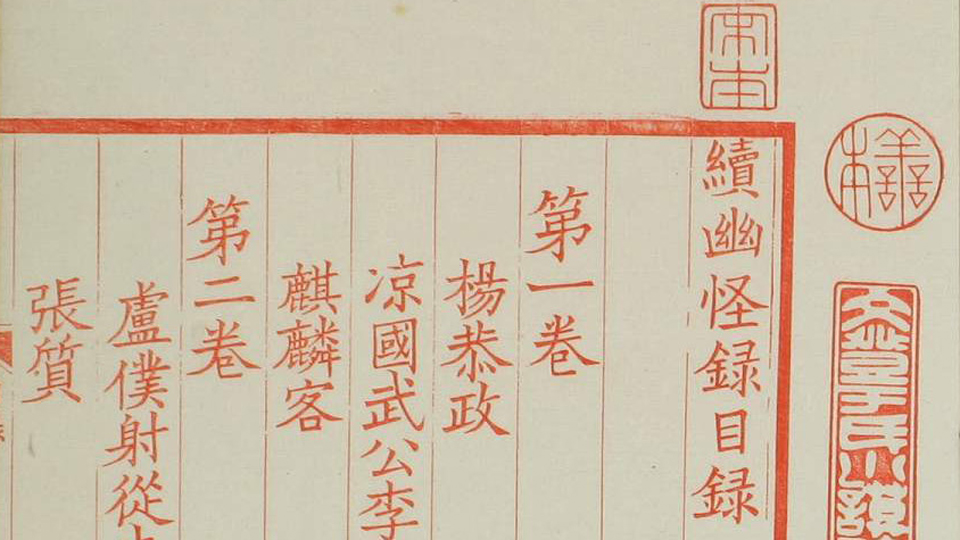 續幽怪録目録
第一卷
楊恭政
凉國武公李
麒麟客
第二卷
盧僕射從
張質
宋本
善本